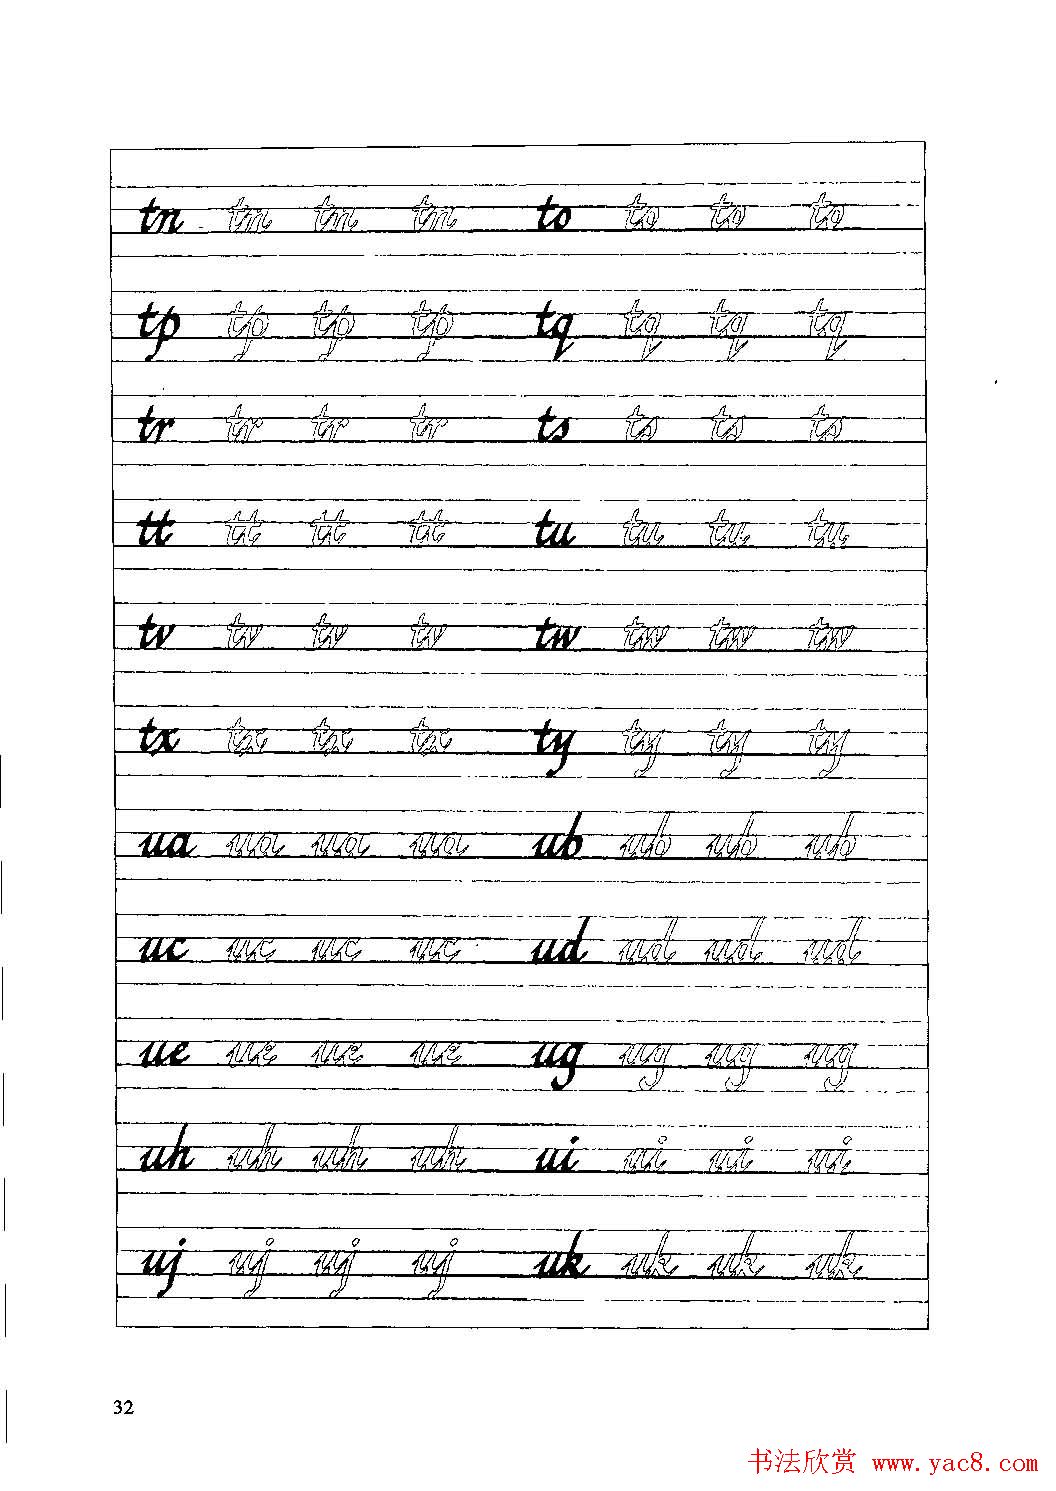 tn tn tn tn to to to to
tp tp tp tp tq tq tq tq
tr tr tr tr ts ts ts ts
tt tt tt tt tu tu tu tu
tv tv tv tv tw tw tw tw
tx tx tx tx ty ty ty ty
ua ua ua ua ub ub ub ub
uc uc uc uc ud ud ud ud
ue ue ue ue ug ug ug ug
uh uh uh uh ui ui ui ui
uj uj uj uj uk uk uk uk
32
书法欣赏 www.yac8.com